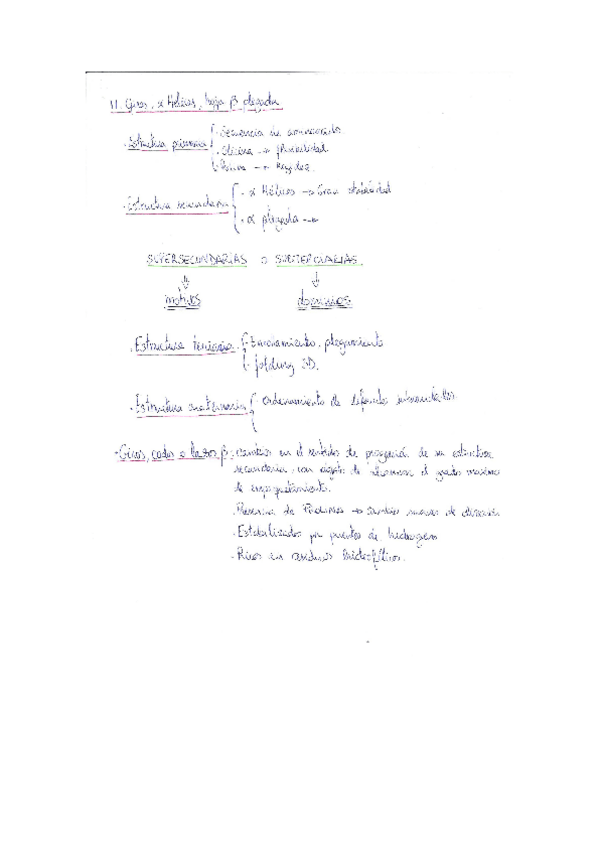 11. Giros, α Hélices, hoja β plegada
· Estructura primaria { · Secuencia de aminoácidos
· Glicina → flexibilidad
· Prolina → Rigidez
· Estructura secundaria { · α Hélices → Gran estabilidad
· α plegada →
SUPERSECUNDARIAS o SUBTERCIARIAS
⇓ ⇓
motivos dominios
· Estructura terciaria { · Enrollamiento, plegamiento
· folding 3D.
· Estructura cuaternaria { Ordenamiento de diferentes
· Giros, codos o lazos β: cambios en el sentido de propagación de su estructura
secundaria, con objeto de alcanzar el grado máximo
de empaquetamiento.
· Presencia de Prolinas → cambios de dirección
· Estabilizados por puentes de hidrógeno
· Ricos en residuos hidrofílicos.